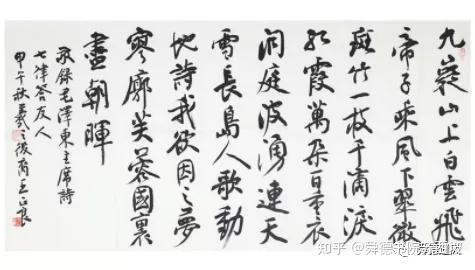 九嶷山上白雲飛
帝子乘風下翠微
斑竹一枝千滴淚
紅霞萬朵百重衣
洞庭波湧連天
雪長島人歌動
地詩我欲因之夢
寥廓芙蓉國裏
盡朝暉
敬錄毛澤東主席詩
七律答友人
甲午秋羲之後裔王
知乎 @舜德书院